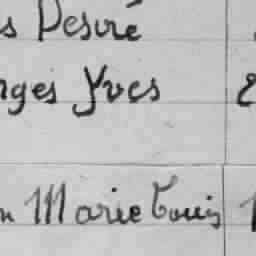 s Desiré
rges Yves
n Marie Louis